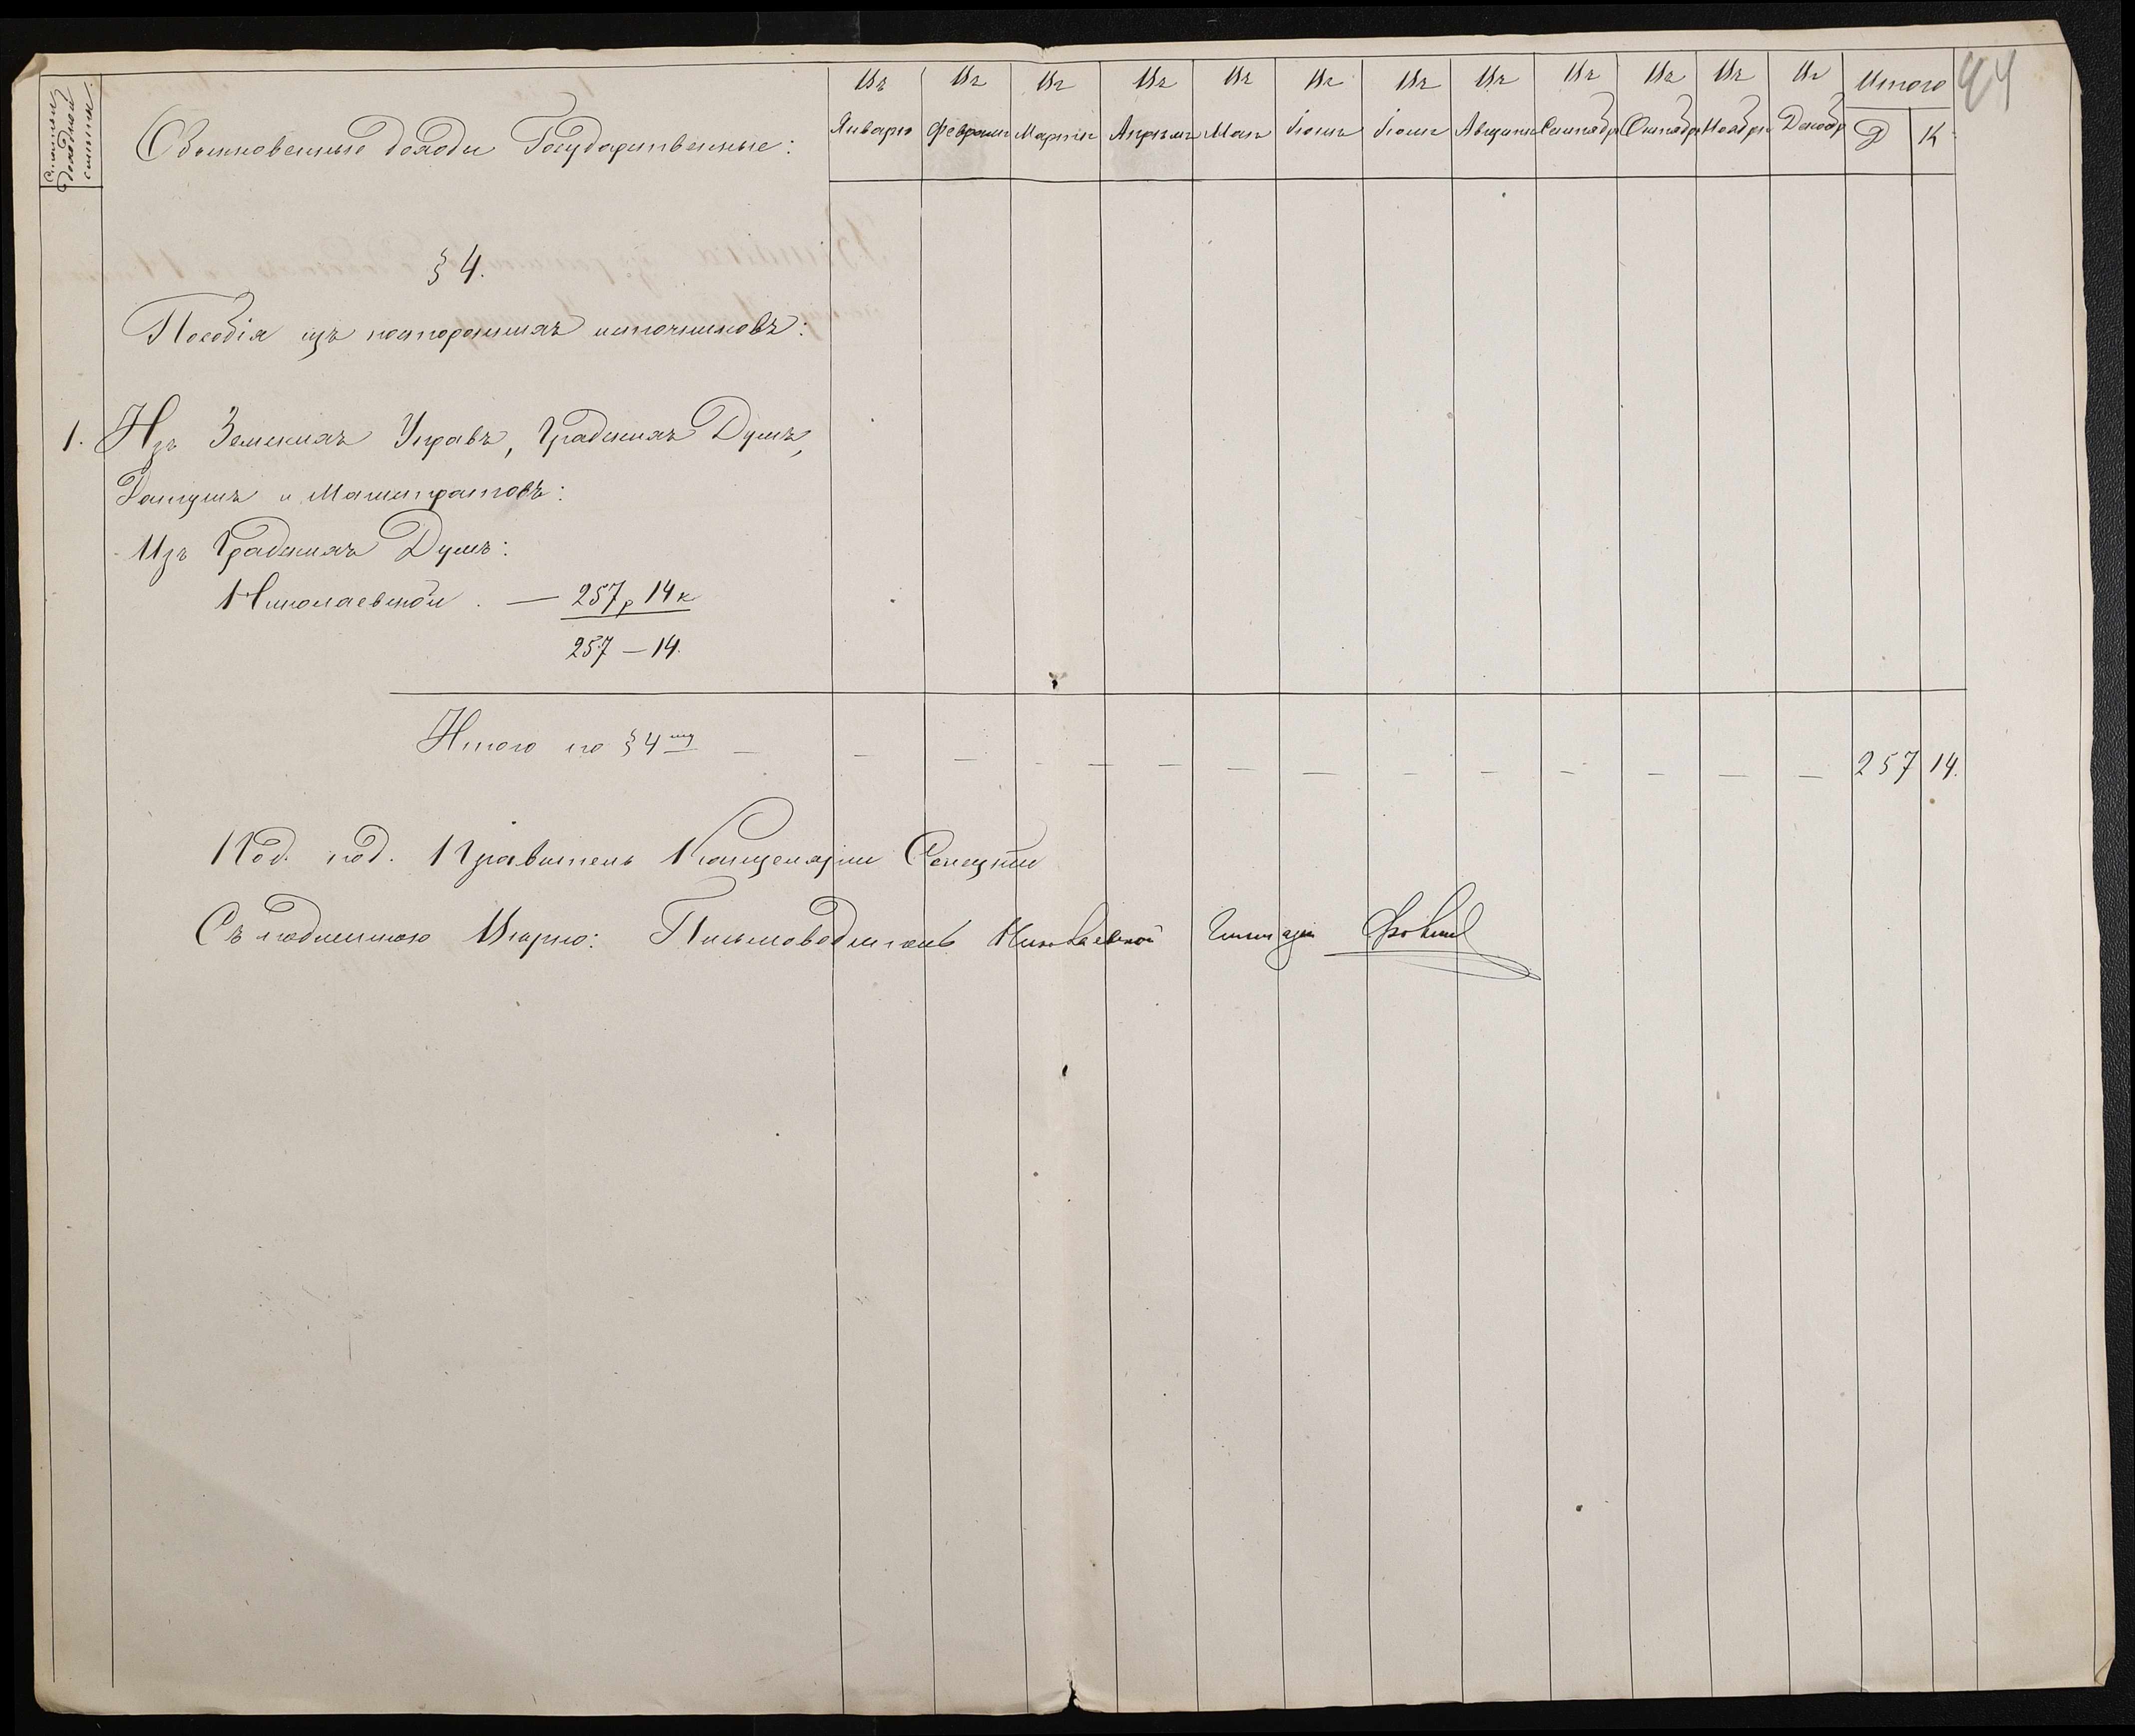 44
Статьи
доходной
сметы.
Обыкновенные доходы Государственные:
Въ Январѣ
Въ Февралѣ
Въ Мартѣ
Въ Апрѣлѣ
Въ Маѣ
Въ Іюнѣ
Въ Іюлѣ
Въ Августѣ
Въ Сентябр
Въ Октябр
Въ Ноябрѣ
Въ Декабр
Итого
Р К
§ 4.
Пособія изъ постороннихъ источниковъ:
1. Изъ Земскихъ Управъ, Градскихъ Думъ,
Ратушъ и Магистратовъ:
Изъ Градскихъ Думъ:
Николаевской — 257 р 14 к
257 — 14.
Итого по § 4му — — — — — — — — — — — — — — 257 14.
Под. под. Правитель Канцеляріи
Съ подлиннымъ вѣрно: Письмоводитель Николаевской Гимназіи